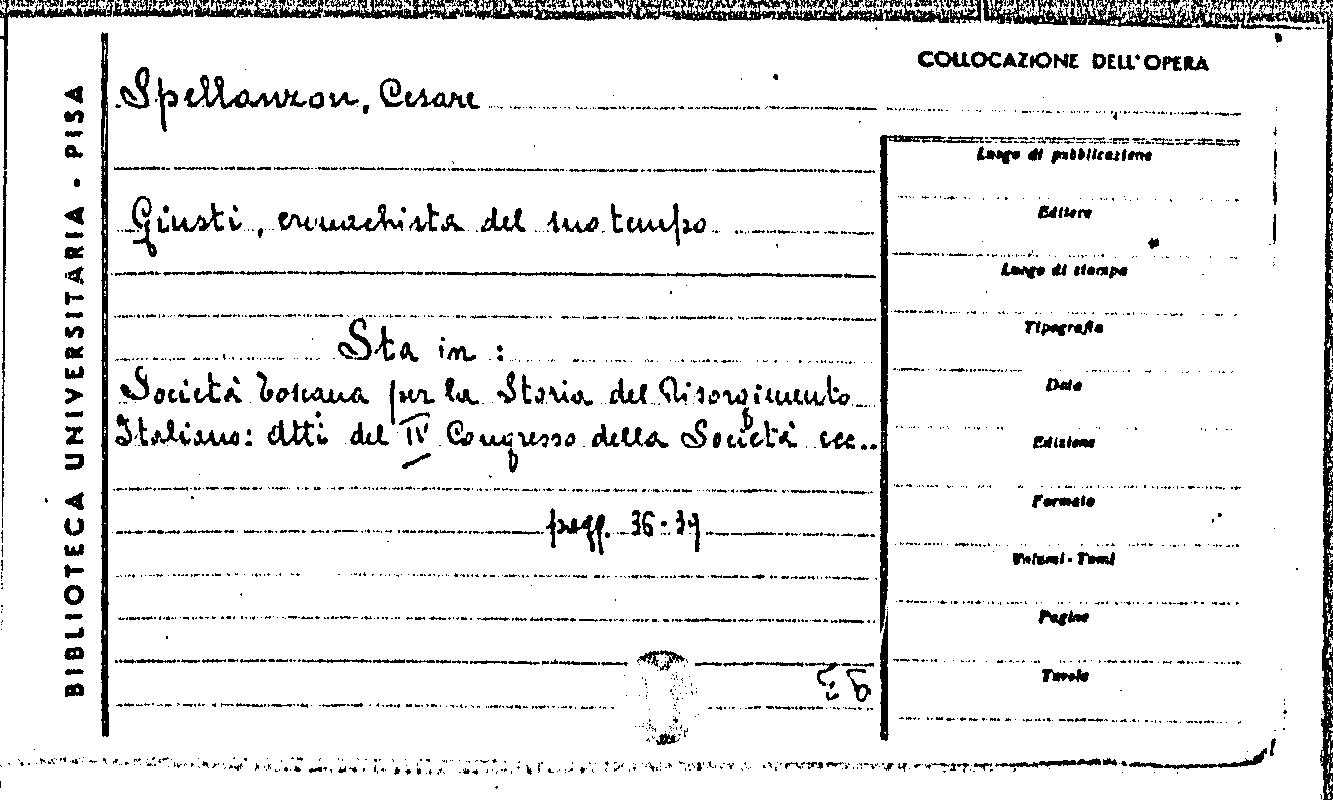 BIBLIOTECA UNIVERSITARIA - PISA
COLLOCAZIONE DELL'OPERA
Spellanzon, Cesare
Giusti, cronachista del suo tempo
Sta in :
Società Toscana per la Storia del Risorgimento
Italiano: Atti del IV Congresso della Società ecc..
pagg. 36-39
Luogo di pubblicazione
Editore
Luogo di stampa
Tipografia
Data
Edizione
Formato
Volumi - Tomi
Pagine
Tavole